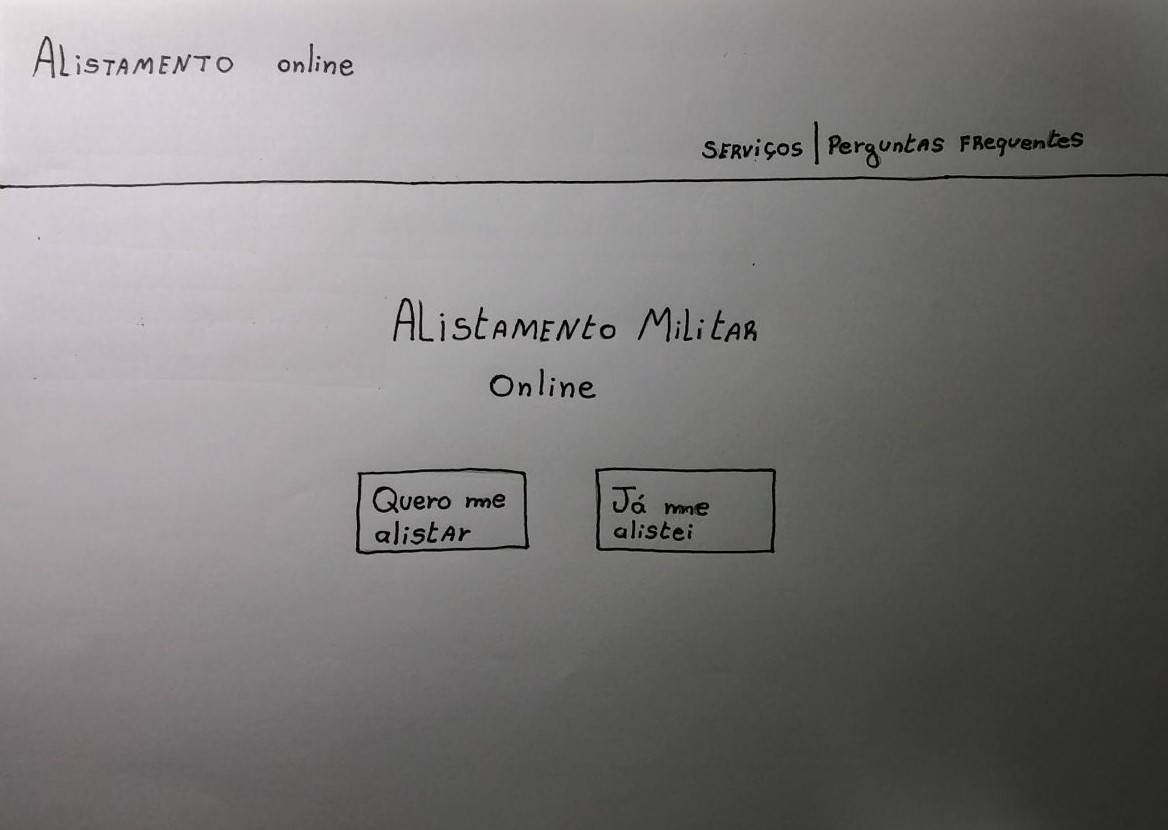 Alistamento online
Serviços | Perguntas Frequentes
Alistamento Militar
Online
Quero me
alistar
Já me
alistei